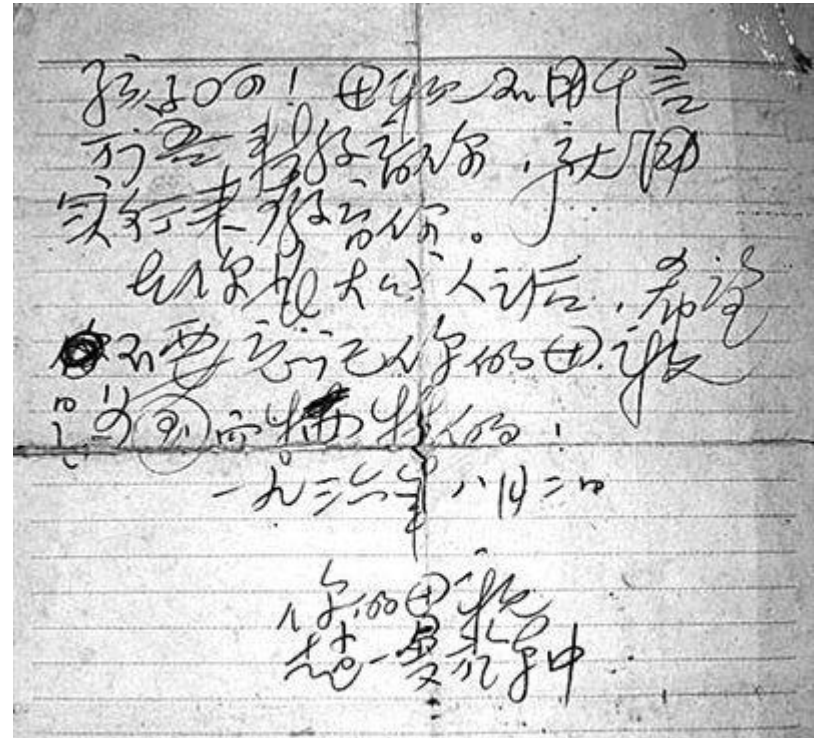 孩子呵！母親不用千言
万言来教育你，就用
实行来教育你。
在你长大成人之后，希望
不要忘记你的母親
是为国而牺牲的！
一九三六年八月二日
你的母親
赵一曼於车中